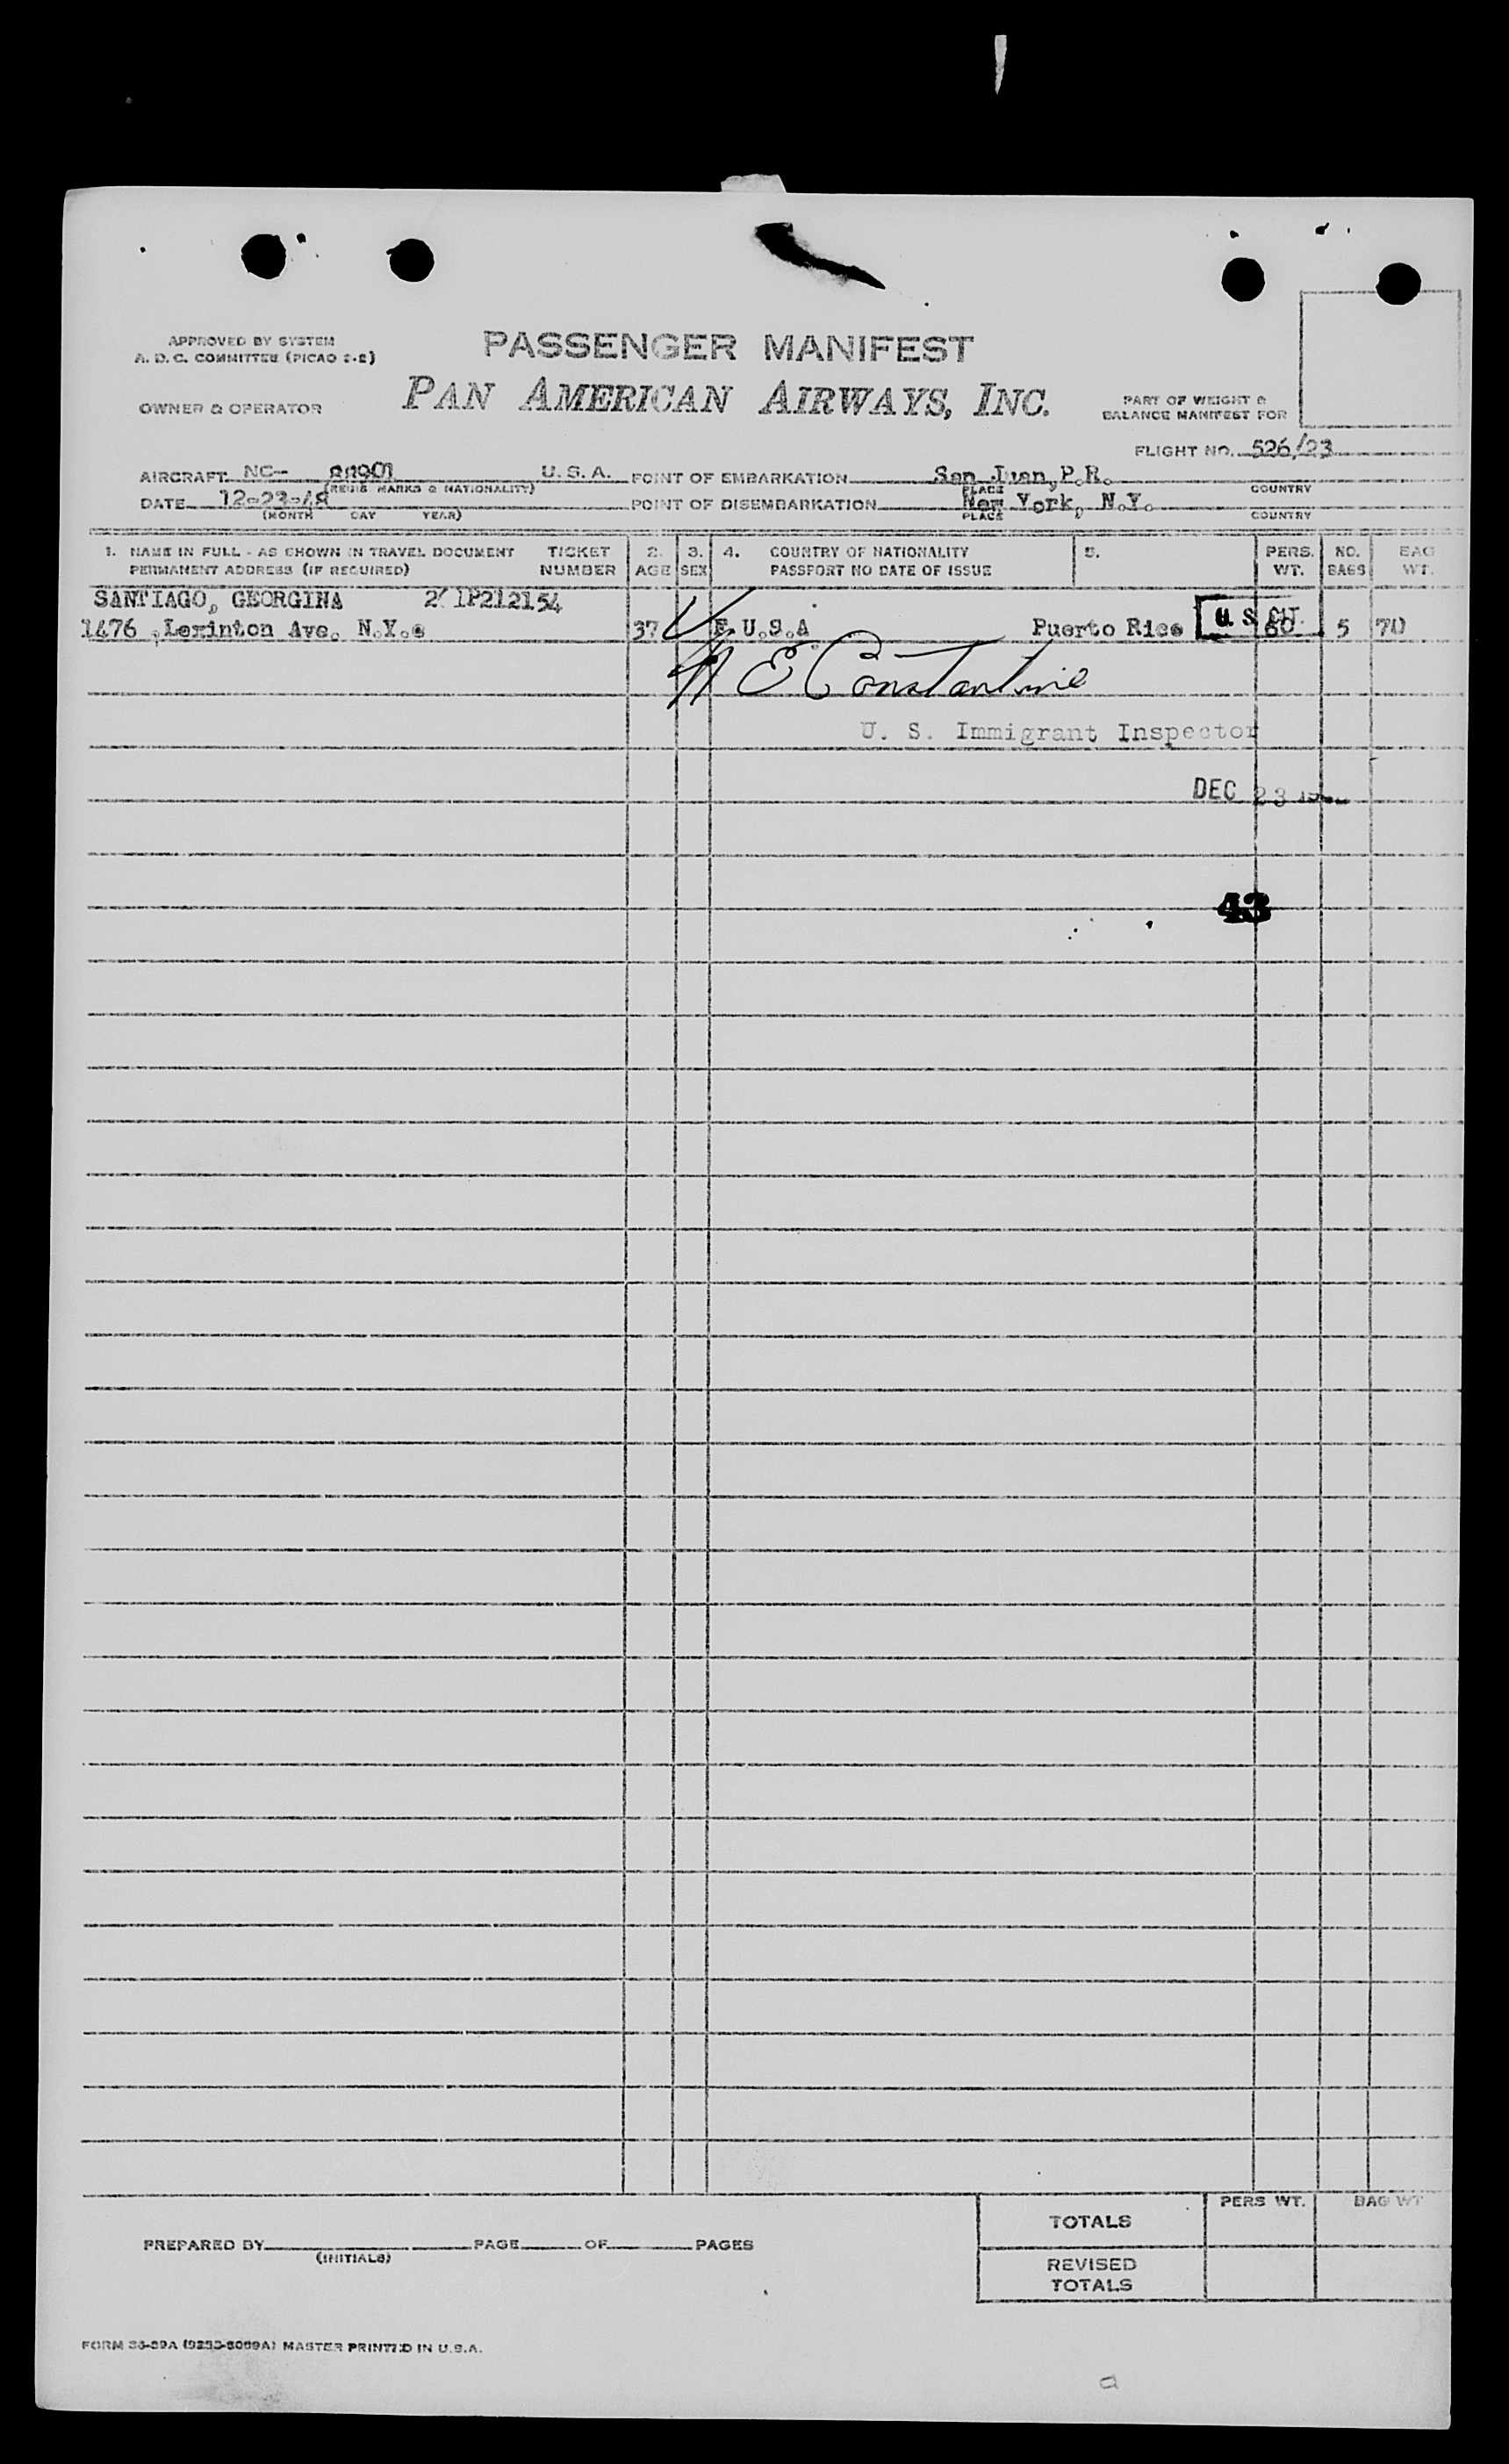 APPROVED BY SYSTEM
A. D. C. COMMITTEE (PICAO 2-2)
PASSENGER MANIFEST
OWNER & OPERATOR
PAN AMERICAN AIRWAYS, INC.
PART OF WEIGHT &
BALANCE MANIFEST FOR
FLIGHT NO. 526/23
AIRCRAFT NC- U.S.A. POINT OF EMBARKATION San Juan, P.R.
(REGIS MARKS & NATIONALITY) PLACE COUNTRY
DATE 12-23-48 POINT OF DISEMBARKATION New York, N.Y.
(MONTH DAY YEAR) PLACE COUNTRY
1. NAME IN FULL - AS SHOWN IN TRAVEL DOCUMENT TICKET 2. 3. 4. COUNTRY OF NATIONALITY 5. PERS. NO. BAG
PERMANENT ADDRESS (IF REQUIRED) NUMBER AGE SEX PASSPORT NO DATE OF ISSUE WT. BAGS WT.
SANTIAGO, GEORGINA 2 1P212154
1476 ,Lexinton Ave. N.Y. 37 F U.S.A Puerto Rico U S CIT. 60 5 70
E Constantine
U. S. Immigrant Inspector
DEC 23
43
PERS WT. BAG WT
TOTALS
PREPARED BY PAGE OF PAGES
(INITIALS)
REVISED
TOTALS
MASTER PRINTED IN U.S.A.
a